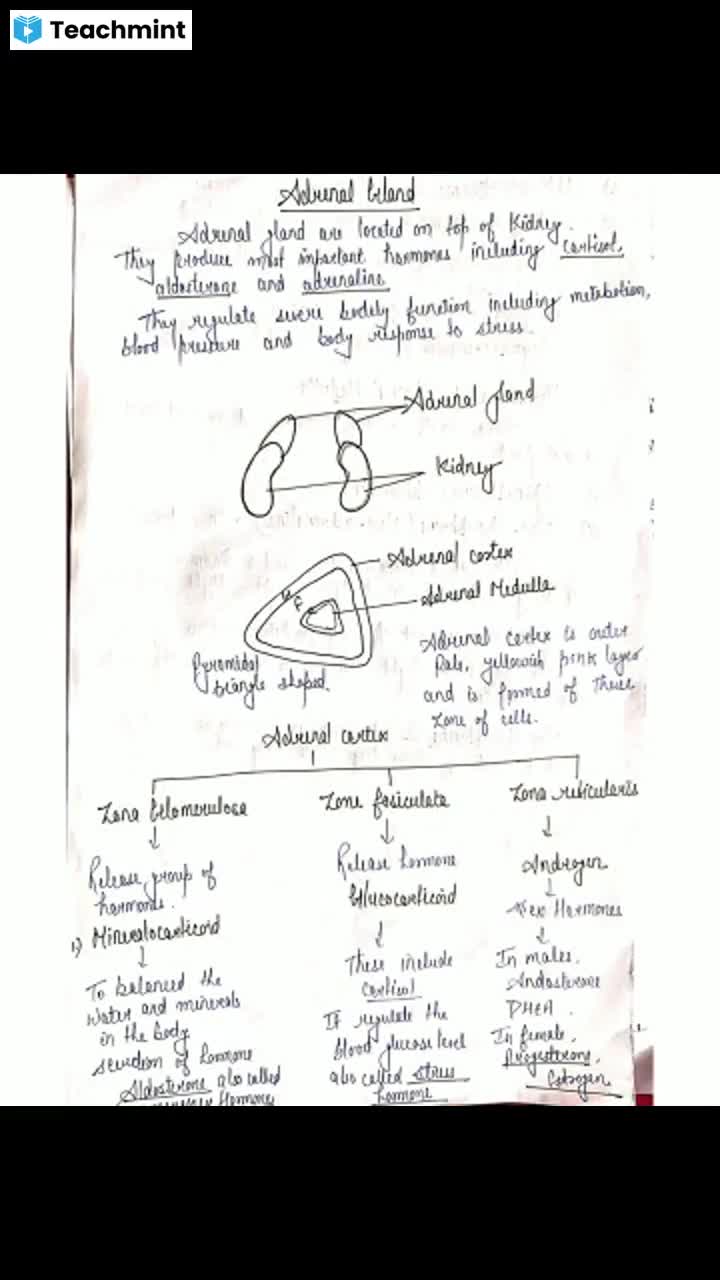 Teachmint
Adrenal Gland
Adrenal gland are located on top of Kidney.
They produce most important hormones including cortisol,
aldosterone and adrenaline
They regulate severe bodily function including metabolism,
blood pressure and body response to stress.
Adrenal gland
Kidney
Adrenal cortex
Adrenal Medulla
Pyramidal
triangle shaped.
Adrenal cortex is outer
Pale, yellowish pink layer
and is formed of three
zone of cells.
Adrenal cortex
Zona Glomerulosa
Zone fasiculate
Zona reticularis
Release group of
hormones.
1) Mineralocorticoid
To balanced the
water and minerals
in the body
hormone
Aldosterone also called
Hormone
Release hormone
Glucocorticoid
These include
cortisol
It regulate the
blood glucose level
also called stress
hormone
Androgen
Sex Hormones
In males.
Andosterone
DHEA.
In female,
Progesterone,
Estrogen